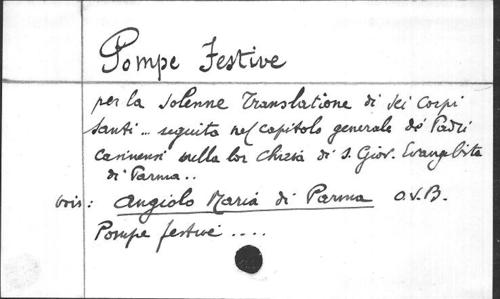 Pompe Festive
per la solenne Translatione di sei Corpi
Santi... seguita nel capitolo generale de' Padri
Casinensi nella lor Chiesa di S. Giov. Evangelista
di Parma..
vois: Angiolo Maria di Parma O.S.B.
Pompe festive ....